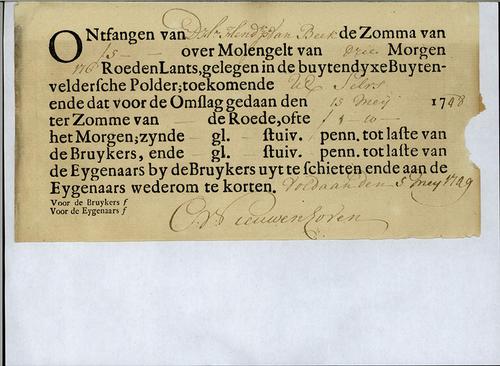 ONtfangen van Hend: Van Beek de Zomma van
f 5 - over Molengelt van Drie Morgen
176 Roeden Lants, gelegen in de buytendyxe Buyten-
veldersche Polder; toekomende
ende dat voor de Omslag gedaan den 15 Meij 1748
ter Zomme van - de Roede, ofte f 1 -
het Morgen; zynde - gl. - stuiv. penn. tot laste van
de Bruykers, ende gl. - stuiv. - penn. tot laste van
de Eygenaars by de Bruykers uyt te schieten ende aan de
Eygenaars wederom te korten. Voldaan den 5 Meij 1749
Voor de Bruykers f
Voor de Eygenaars f
Nieuwenhoven